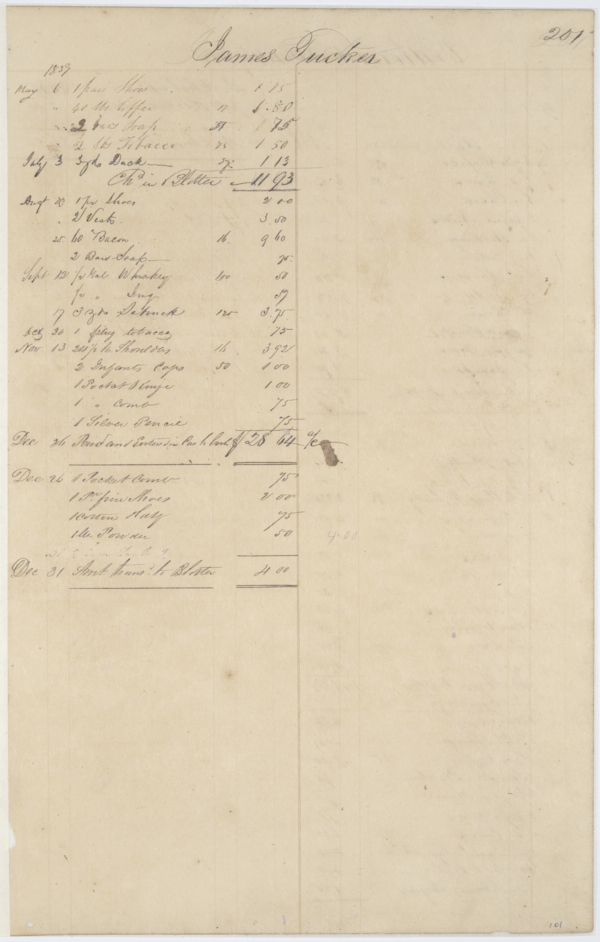 201
James Tucker
1839
May 6 1 pair Shoes 1 75
" 40 lbs Coffee
" 2 bars Soap 75
2 lbs Tobacco 75 1 50
July 3 3 yds Duck 1 13
Chd in Blotter 11 93
Augt 20 1 pr Shoes 2 00
" 2 Vests 3 50
25 60 " Bacon 16 9 60
2 Bars Soap 75
Sept 12 Gal Whiskey 100 50
" Jug 37
17 3 yds 125 3.75
Oct 20 1 plug tobacco 75
Nov 13 24 1/2 lb Shoulders 16 3 92
2 Infants Caps 50 1 00
1 Pocket Knife 1 00
1 " Comb 75
1 Silver Pencil 75
Dec 26 Paid and Enterd in Cash book $ 28 64
Dec 26 1 Pocket Comb 75
1 Pr fine Shoes 2 00
1 Cotton Hdkf 75
1 lb Powder 50
4.00
Dec 31 Amt transd to Blotter 4 00
101